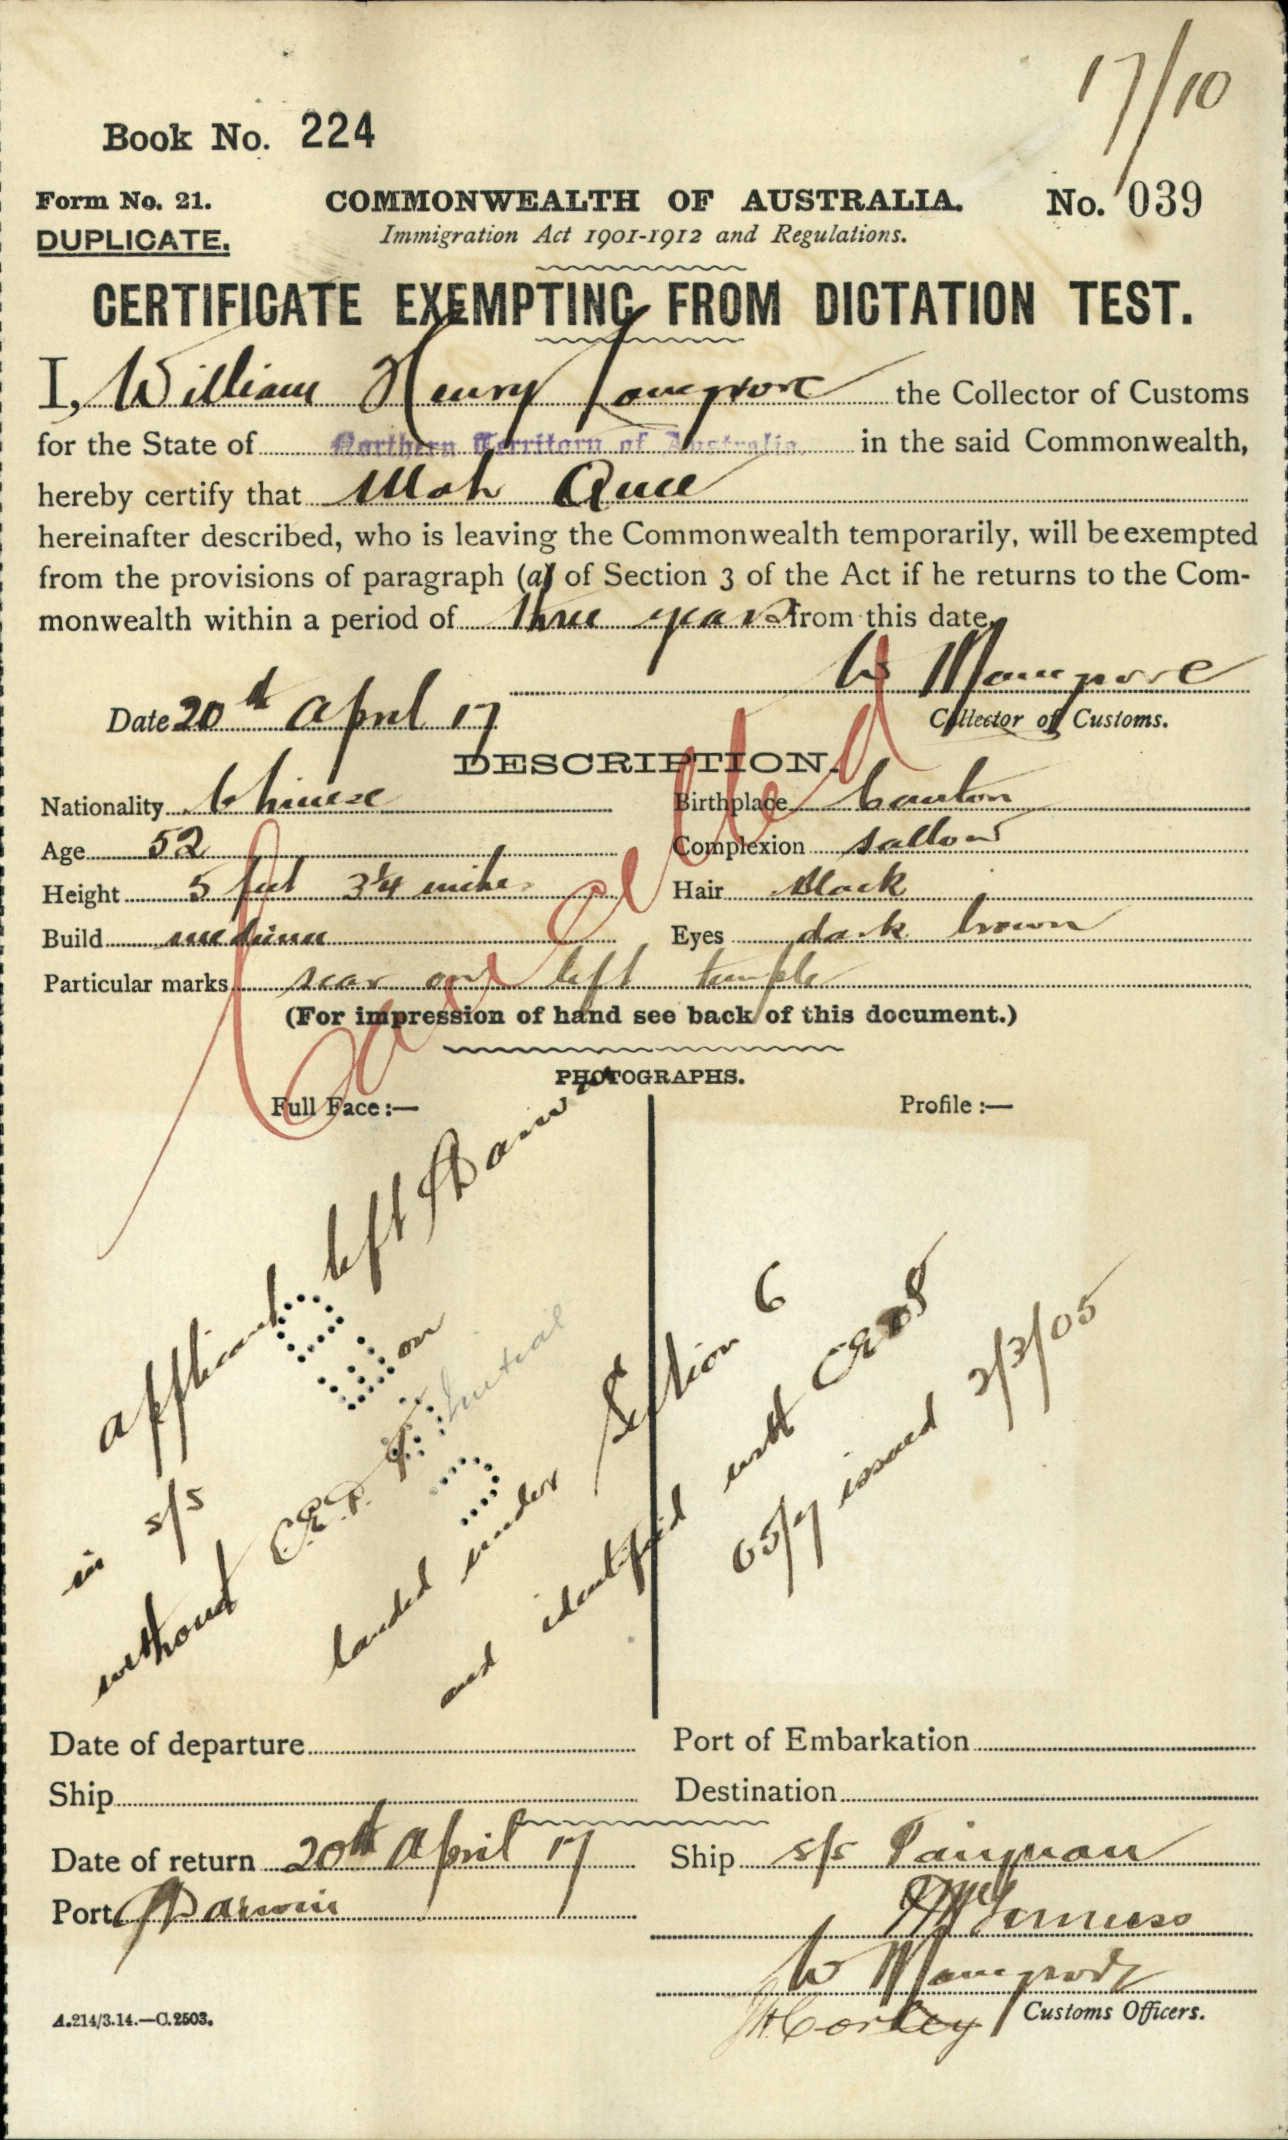 17/10
Book No. 224
Form No. 21. COMMONWEALTH OF AUSTRALIA. No. 039
DUPLICATE. Immigration Act 1901-1912 and Regulations.
CERTIFICATE EXEMPTING FROM DICTATION TEST.
I, William Henry the Collector of Customs
for the State of Northern Territory of Australia. in the said Commonwealth,
hereby certify that Mah Quee
hereinafter described, who is leaving the Commonwealth temporarily, will be exempted
from the provisions of paragraph (a) of Section 3 of the Act if he returns to the Com-
monwealth within a period of three years from this date.
W
Date 20th April 17 Collector of Customs.
DESCRIPTION.
Nationality Chinese Birthplace Canton
Age 52 Complexion sallow
Height 5 feet 3¼ inches Hair Black
Build medium Eyes dark brown
Particular marks scar on left temple
(For impression of hand see back of this document.)
Cancelled
PHOTOGRAPHS.
Full Face :— Profile :—
applicant left Darwin
in s/s on
without C.E.D.T. initial
landed under Section 6
and identified with
05/7 issued 2/3/05
Date of departure Port of Embarkation
Ship Destination
Date of return 20th April 17 Ship s/s Taiyuan
Port Darwin
W
Corley Customs Officers.
A.214/3.14.—C.2503.